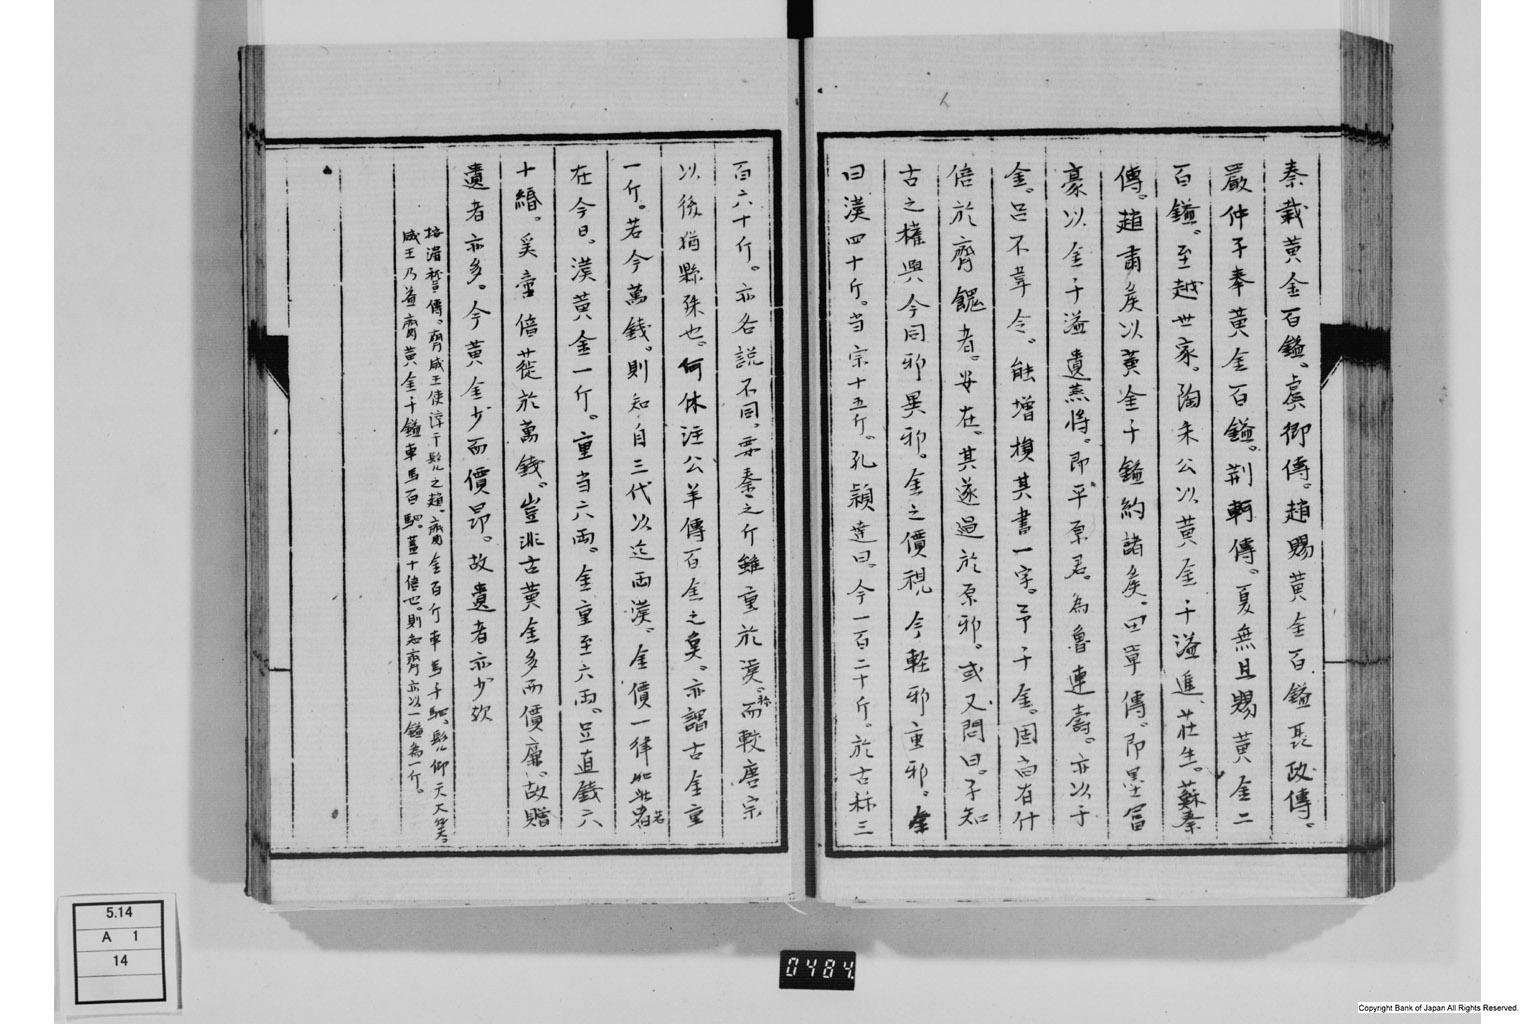 秦載黃金百鎰。虞卿傳。趙賜黃金百鎰。聶政傳。
嚴仲子奉黃金百鎰。荆軻傳。夏無且賜黃金二
百鎰。至越世家。陶朱公以黃金千溢進莊生。蘇秦
傳。趙肅矦以黃金千鎰約諸矦。田單傳。即墨冨
豪以金千溢遺燕將。即平原君。為魯連壽。亦以千
金。呂不韋令。能增損其書一字。予千金。固啇有什
倍於齊餽者。安在。其遂過於原邪。或又問曰。子知
古之權與今同邪異邪。金之價視今輕邪重邪。
曰漢四十斤。當宗十五斤。孔穎達曰。今一百二十斤。於古秤三
百六十斤。亦各說不同。要秦之斤雖重於漢。而較唐宗
以後猶縣殊也。何休注公羊傳百金之魚。亦謂古金重
一斤。若今萬錢。則知自三代以迄両漢。金價一律
在今日。漢黃金一斤。重当六兩。金重至六両。豈直錢六
十緡。奚啻倍蓰於萬錢。豈非古黃金多而價廉。故贈
遺者亦多。今黃金少而價昂。故遺者亦少欤
按滑稽傳。齊威王使淳于髡之趙。齎金百斤車馬十駟。髡仰天大笑。
威王乃益齎黃金千鎰車馬百駟。蓋十倍也。則知齊亦以一鎰為一斤。
5.14
A 1
14
0484
Copyright Bank of Japan All Rights Reserved.